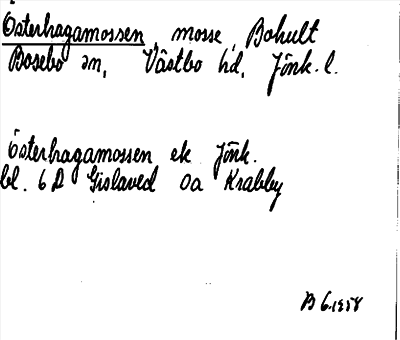 Österhagamossen, mosse, Bohult
Bosebo sn, Västbo hd, Jönk. l.
Österhagamossen ek Jönk.
bl. 6D Gislaved 0a Krabby
B 6.1958